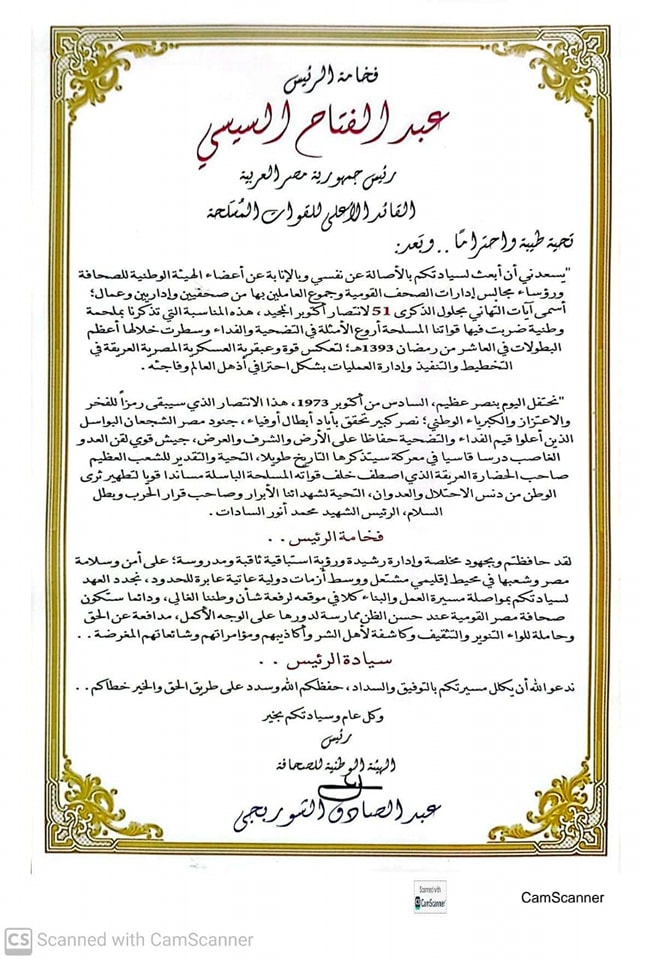 فخامة الرئيس
عبد الفتاح السيسي
رئيس جمهورية مصر العربية
القائد الأعلى للقوات المُسلحة
تحية طيبة واحترامًا . . وبَعد:
"يسعدني أن أبعث لسيادتكم بالأصالة عن نفسي وبالإنابة عن أعضاء الهيئة الوطنية للصحافة
ورؤساء مجالس إدارات الصحف القومية وجموع العاملين بها من صحفيين وإداريين وعمال؛
أسمى آيات التهاني بحلول الذكرى 51 لانتصار أكتوبر المجيد، هذه المناسبة التي تذكرنا بملحمة
وطنية ضربت فيها قواتنا المسلحة أروع الأمثلة في التضحية والفداء وسطرت خلالها أعظم
البطولات في العاشر من رمضان 1393هـ؛ لتعكس قوة وعبقرية العسكرية المصرية العريقة في
التخطيط والتنفيذ وإدارة العمليات بشكل احترافي أذهل العالم وفاجئه.
"نحتفل اليوم بنصر عظيم، السادس من أكتوبر 1973، هذا الانتصار الذي سيبقى رمزاً للفخر
والاعتزاز والكبرياء الوطني؛ نصر كبير تحقق بأياد أبطال أوفياء، جنود مصر الشجعان البواسل
الذين أعلوا قيم الفداء والتضحية حفاظا على الأرض والشرف والعرض، جيش قوي لقن العدو
الغاصب درسا قاسيا في معركة سيتذكرها التاريخ طويلا، التحية والتقدير للشعب العظيم
صاحب الحضارة العريقة الذي اصطف خلف قواته المسلحة الباسلة مساندا قويا لتطهير ثرى
الوطن من دنس الاحتلال والعدوان، التحية لشهدائنا الأبرار وصاحب قرار الحرب وبطل
السلام، الرئيس الشهيد محمد أنور السادات.
فخامة الرئيس . .
لقد حافظتم وبجهود مخلصة وإدارة رشيدة ورؤية استباقية ثاقبة ومدروسة؛ على أمن وسلامة
مصر وشعبها في محيط إقليمي مشتعل ووسط أزمات دولية عاتية عابرة للحدود، نجدد العهد
لسيادتكم بمواصلة مسيرة العمل والبناء كلا في موقعه لرفعة شأن وطننا الغالي، ودائما ستكون
صحافة مصر القومية عند حسن الظن ممارسة لدورها على الوجه الأكمل، مدافعة عن الحق
وحاملة للواء التنوير والتثقيف وكاشفة لأهل الشر وأكاذيبهم ومؤامراتهم وشائعاتهم المغرضة . .
سيادة الرئيس . .
ندعو الله أن يكلل مسيرتكم بالتوفيق والسداد، حفظكم الله وسدد على طريق الحق والخير خطاكم . .
وكل عام وسيادتكم بخير
رئيس
الهيئة الوطنية للصحافة
عبد الصادق الشوربجي
Scanned with
CS CamScanner
CamScanner
CS Scanned with CamScanner